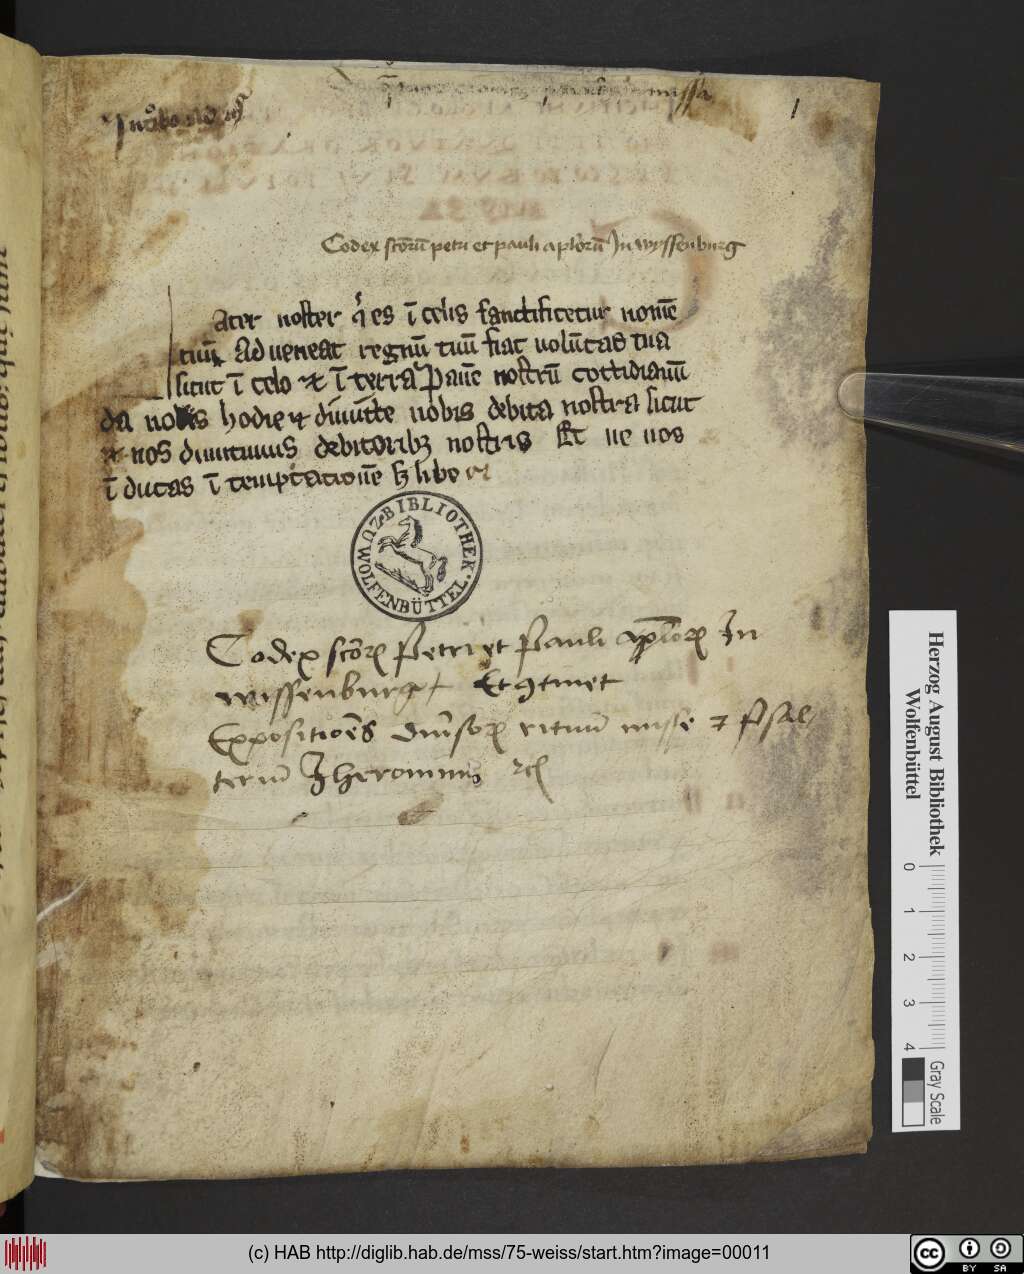 missa
1
Codex sctorū petri et pauli aplorū In wyssenburg
ater noster qi es ī celis sanctificetur nomē
tuū Adueneat regnū tuū fiat uolūtas tua
sicut ī celo et ī terra Panē nostrū cottidianū
da nobis hodie et dimitte nobis debita nostra sicut
et nos dimitimus debitoribꝫ nostris Et ne nos
ī ducas ī temptationē sꝫ libe
BIBLIOTHEK ZU WOLFENBÜTTEL.
Codex sctoꝝ Petri et Pauli aploꝝ In
wissenburg Et ꝯtinet
Expositiōes diuersoꝝ rituū misse ⁊ Psal
teriū Jheronimi ⁊cꝭ
Herzog August Bibliothek
Wolfenbüttel
0 1 2 3 4
Gray Scale
(c) HAB http://diglib.hab.de/mss/75-weiss/start.htm?image=00011
cc BY SA